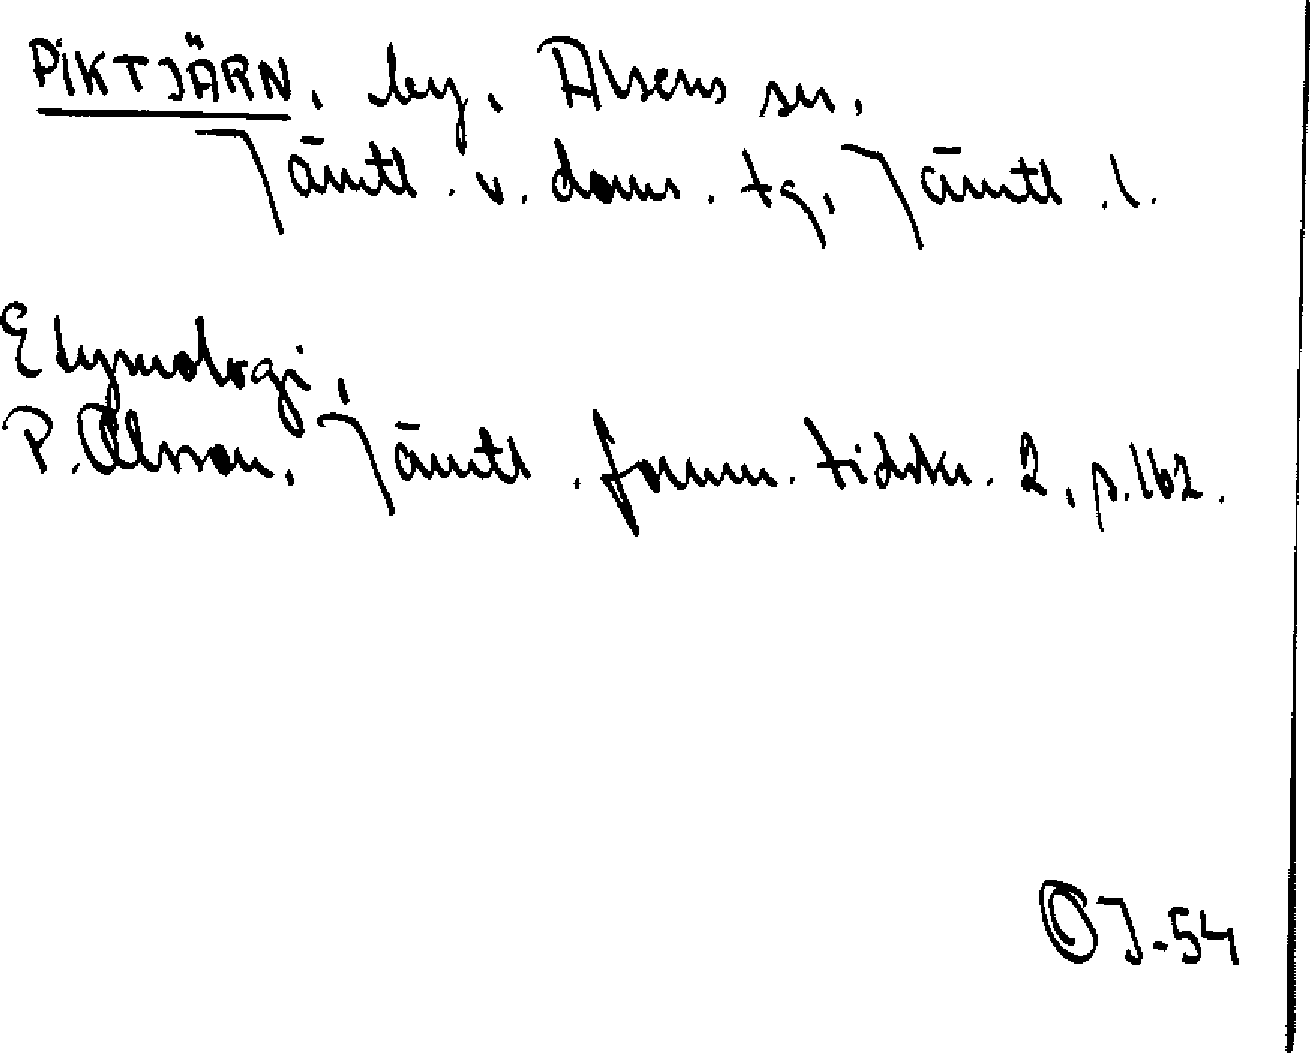 PIKTJÄRN, by, Alsens sn,
Jämtl. v. doms. tg, Jämtl. l.
Etymologi,
P. Olsson, Jämtl. fornm. tidskr. 2, p. 162.
OJ-54